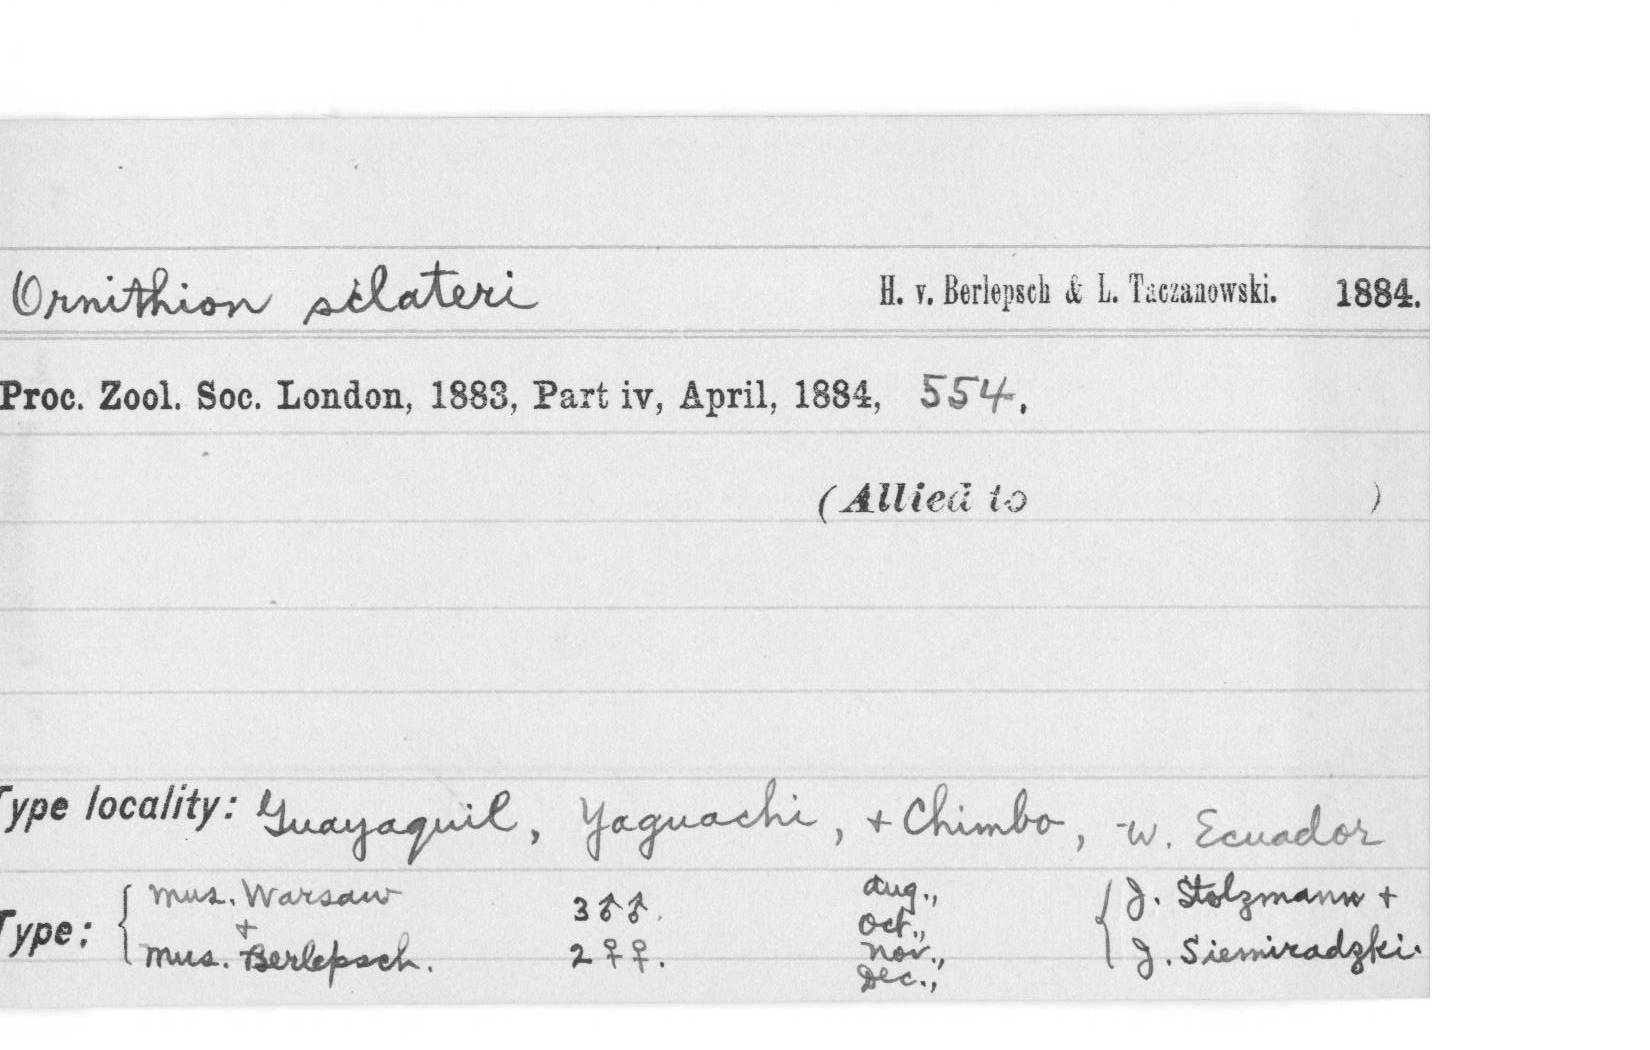 Ornithion sclateri H. v. Berlepsch & L. Taczanowski. 1884.
Proc. Zool. Soc. London, 1883, Part iv, April, 1884, 554.
(Allied to )
Type locality: Guayaquil, Yaguachi, + Chimbo, W. Ecuador
Type: { Mus. Warsaw + Mus. Berlepsch. 3 ♂♂. 2 ♀♀. Aug., Oct., Nov., Dec., { J. Stolzmann + J. Siemiradzki.